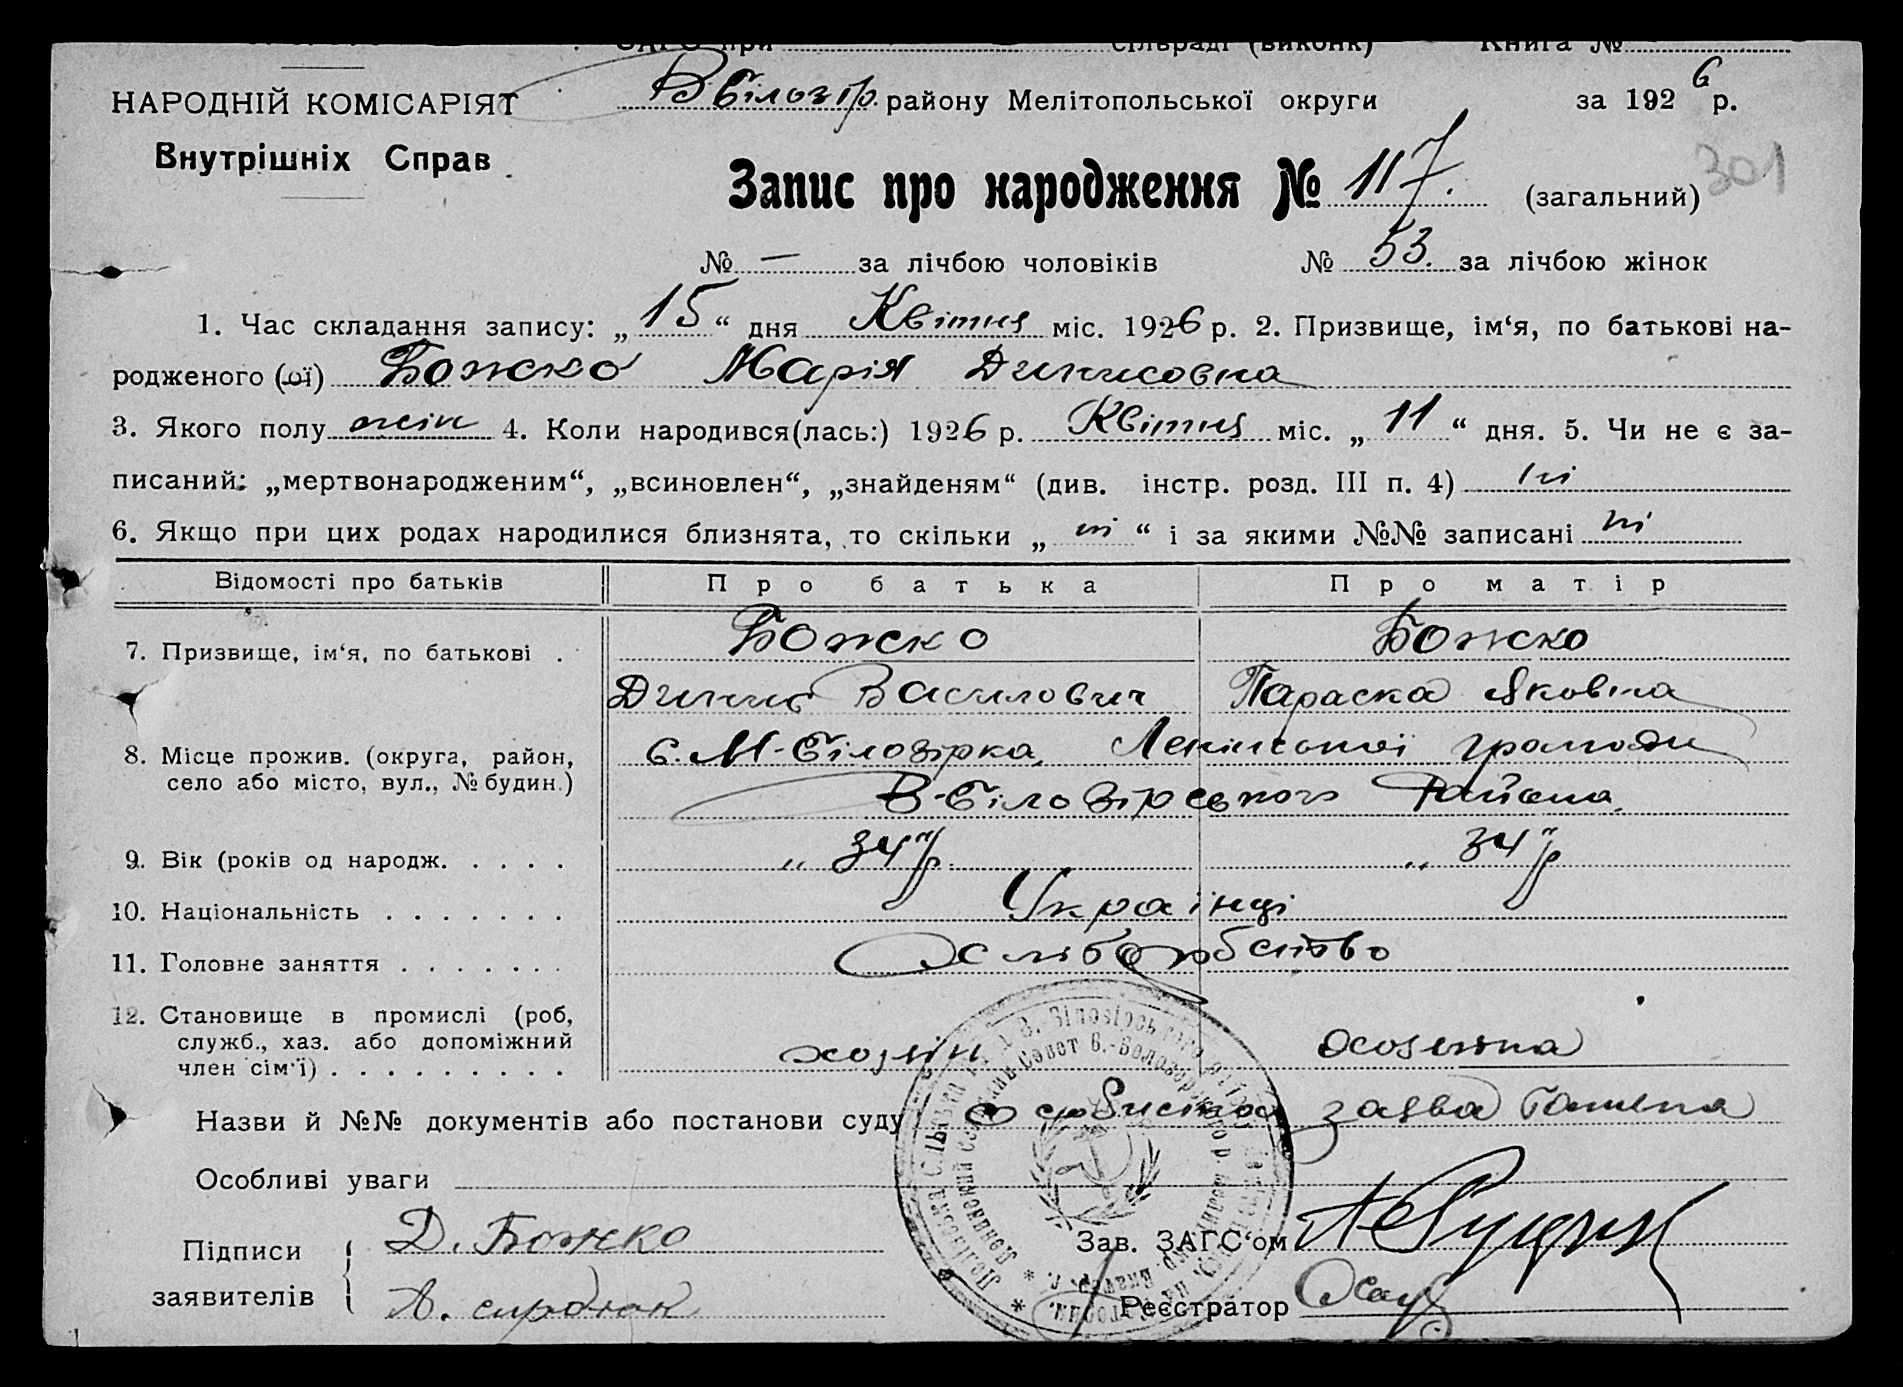 ЗАГС при сільраді (виконк) Книга №
НАРОДНІЙ КОМІСАРІЯТ
Внутрішніх Справ
В Білозір. району Мелітопольської округи за 1926 р.
301
Запис про народження № 117. (загальний)
№ — за лічбою чоловіків № 53. за лічбою жінок
1. Час складання запису: „15“ дня Квітня міс. 1926 р. 2. Призвище, ім‘я, по батькові на-
родженого (ої) Божко Марія Динисовна
3. Якого полу жін 4. Коли народився(лась:) 1926 р. Квітня міс. „11“ дня. 5. Чи не є за-
писаний: „мертвонародженим“, „всиновлен“, „знайденям“ (див. інстр. розд. III п. 4) ні
6. Якщо при цих родах народилися близнята, то скільки „ні“ і за якими №№ записані ні
Відомості про батьків Про батька Про матір
7. Призвище, ім‘я, по батькові . Божко Божко
Динис Василович Параска Яковна
8. Місце прожив. (округа, район, с. М-Білозірка, Ленінської громади
село або місто, вул., № будин.) В-Білозірського Района
9. Вік (років од народж. . . . . „ 34 р. „ 34 р
10. Національність . . . . . . . Українці
11. Головне заняття . . . . . . . Хліборобство
12. Становище в промислі (роб,
служб., хаз. або допоміжний хозяін хозяйка
член сім‘ї) . . . . . . . . .
Назви й №№ документів або постанови суду заява
Особливі уваги
Підписи Д. Божко Зав. ЗАГС‘ом
заявителів А. Реєстратор